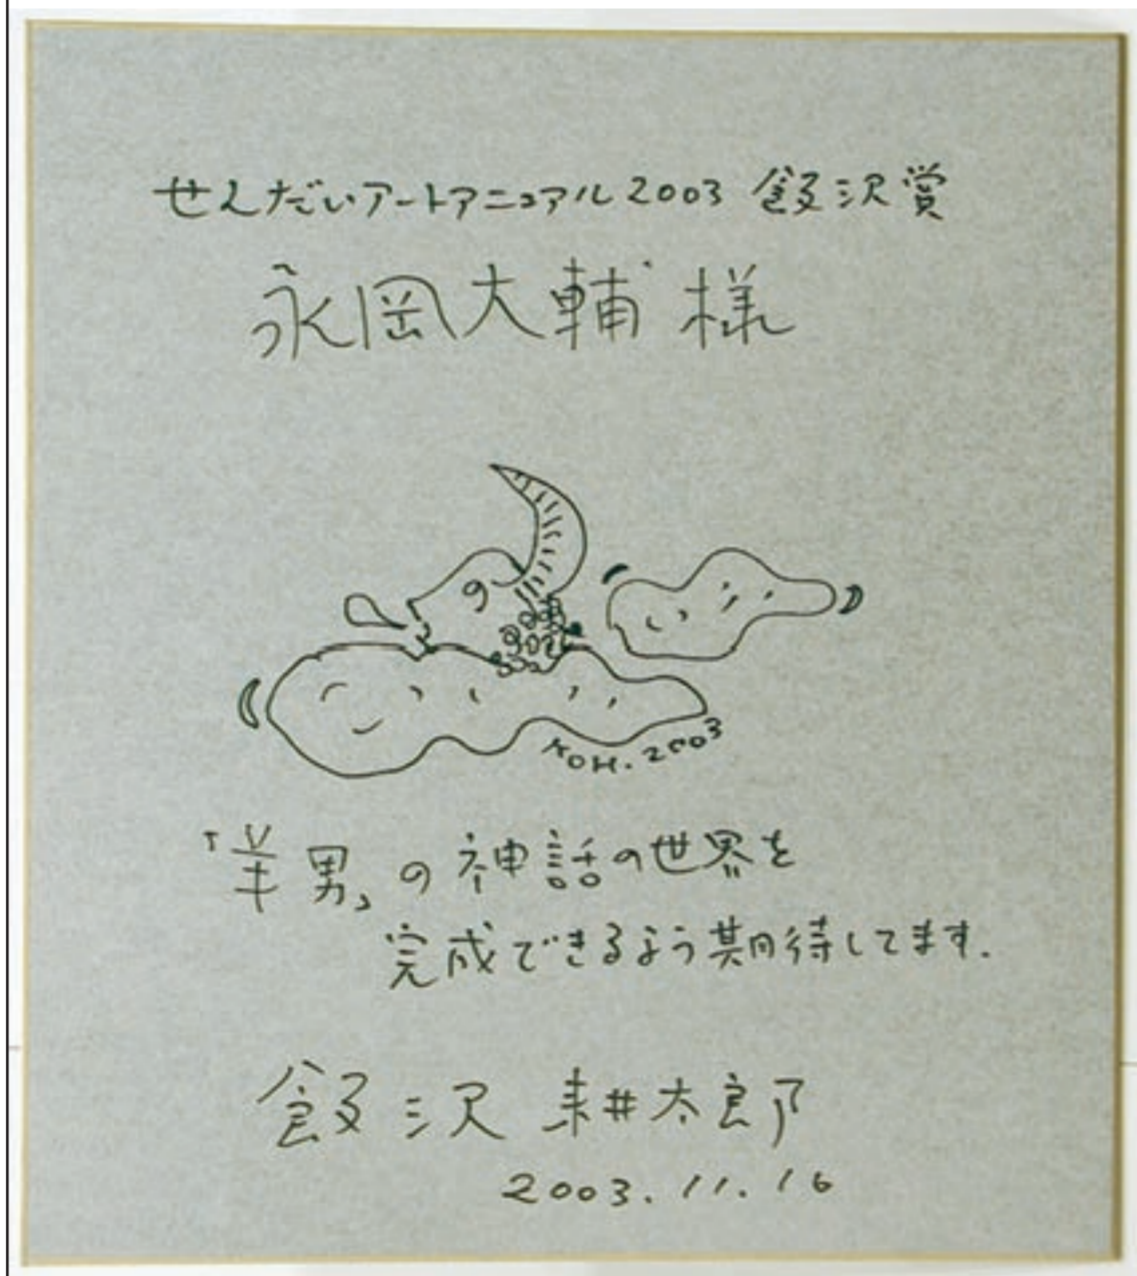 せんだいアートアニュアル2003 飯沢賞
永岡大輔様
KOH.2003
「羊男」の神話の世界を
完成できるよう期待してます.
飯沢 耕太郎
2003.11.16